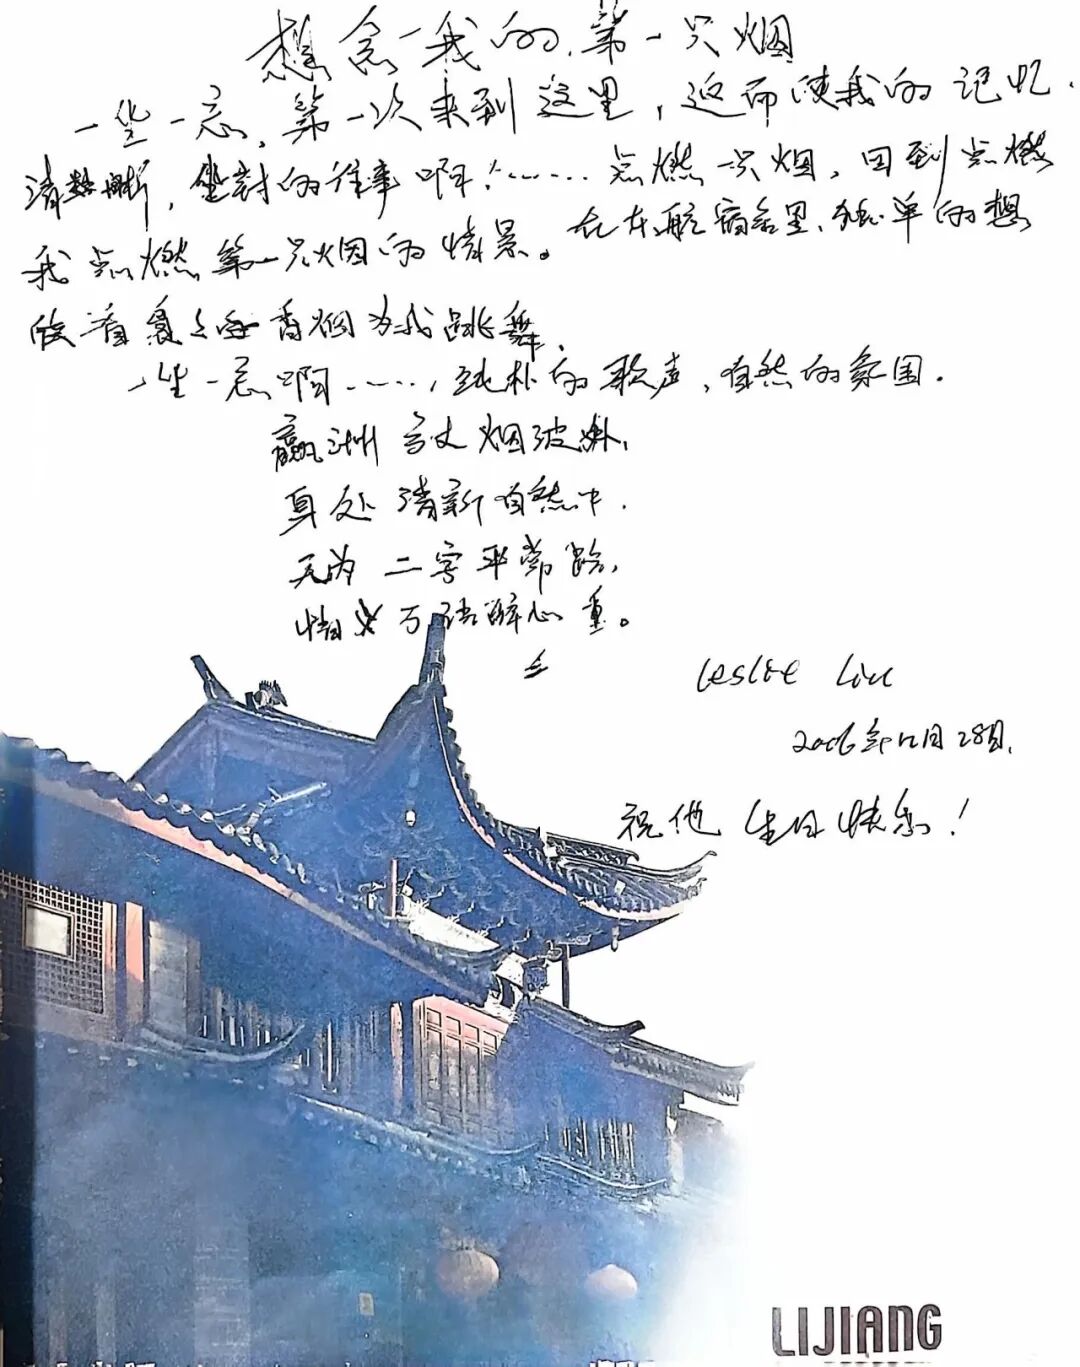 想念我的第一只烟
一坐一忘,第一次来到这里,近而使我的记忆.
清晰,坐封的往事啊!……点燃一只烟,回到点燃
我点燃第一只烟的情景。在东航宿舍里,孤单的想
着 香烟为我跳舞.
一坐一忘啊……,纯朴的歌声,自然的氛围.
瀛洲方丈烟波外,
身处清新自然中.
无为二字平常
万语 心重。
Leslie Liu
2006年12月28日.
祝他 生日快乐!
LIJIANG